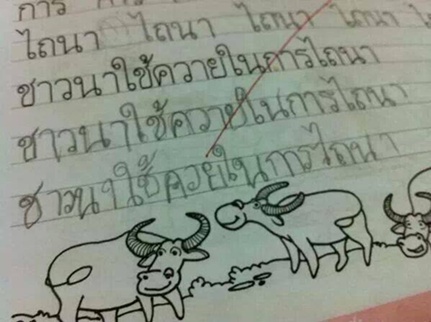 การ การ
ไถนา ไถนา ไถนา ไถนา
ชาวนาใช้ควายในการไถนา
ชาวนาใช้ควายในการไถนา
ชาวนาใช้ควยในการไถนา